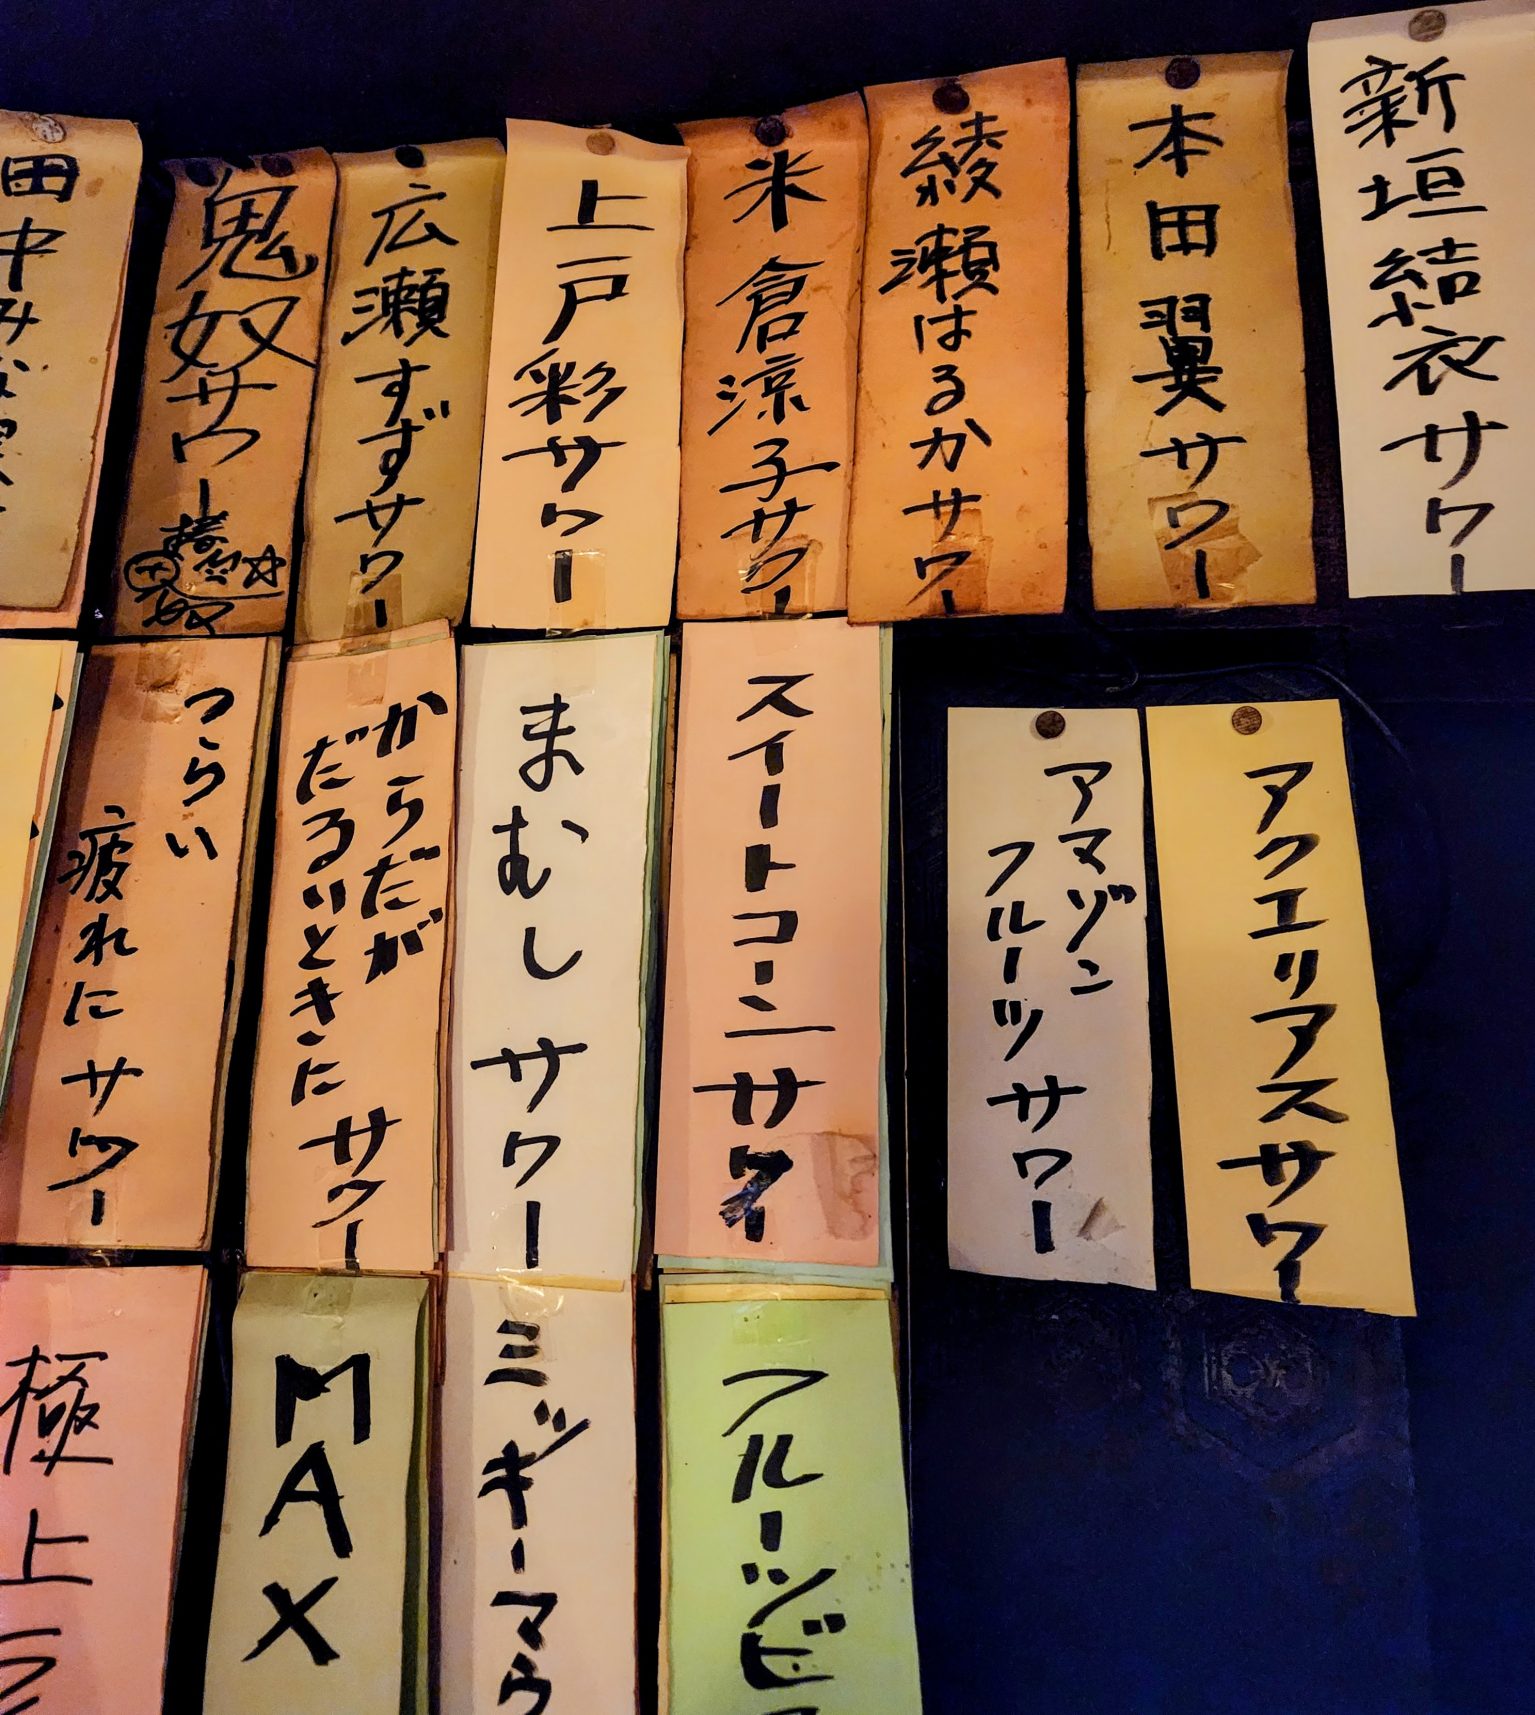 新垣結衣サワー
本田翼サワー
綾瀬はるかサワー
米倉涼子サワー
上戸彩サワー
広瀬すずサワー
鬼奴サワー
椿
鬼奴
田中み
アクエリアスサワー
アマゾン
フルーツサワー
スイートコーンサワー
まむしサワー
からだが
だるいときにサワー
つらい
疲れにサワー
フルーツビ
ミッキーマウ
MAX
極上